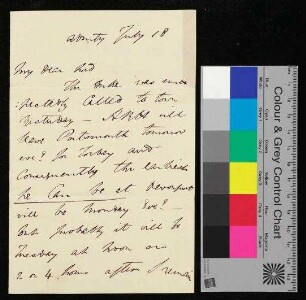 Admty July 18
My Dear Lord
The Duke was unex
pectedly called to town
Yesterday — ARH will
leave Portsmouth tomorrow
eve? for Torbay and
Consequently the earliest
he can be at Devonport
will be Monday Eve? —
but probably it will be
Tuesday at Noon or
2 or 4 hours after I remain
Colour & Grey Control Chart